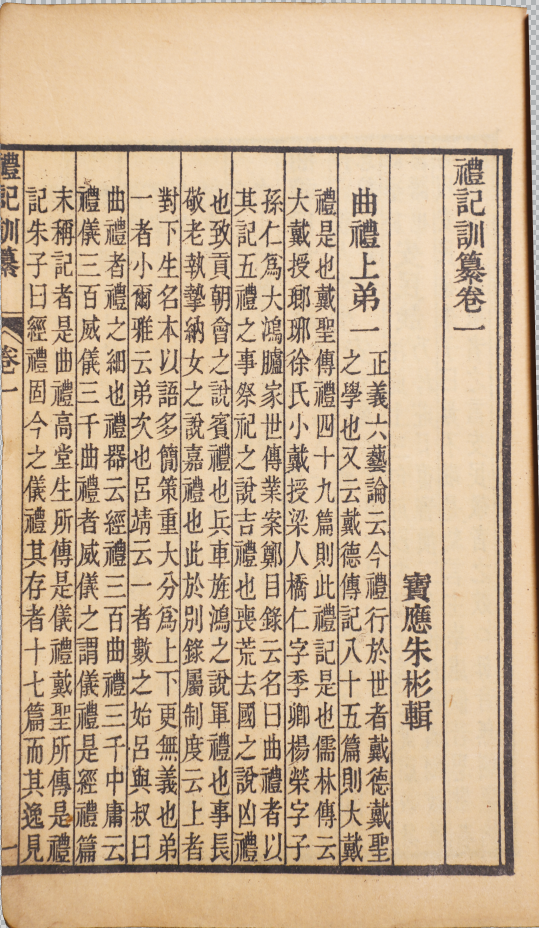 禮記訓纂卷一
寶應朱彬輯
曲禮上弟一
正義六藝論云今禮行於世者戴德戴聖
之學也又云戴德傳記八十五篇則大戴
禮是也戴聖傳禮四十九篇則此禮記是也儒林傳云
大戴授琅邪徐氏小戴授梁人橋仁字季卿楊榮字子
孫仁爲大鴻臚家世傳業案鄭目錄云名曰曲禮者以
其記五禮之事祭祀之說吉禮也喪荒去國之說凶禮
也致貢朝會之說賓禮也兵車旌鴻之說軍禮也事長
敬老執摯納女之說嘉禮也此於別錄屬制度云上者
對下生名本以語多簡策重大分爲上下更無義也弟
一者小爾雅云弟次也呂靖云一者數之始呂與叔曰
曲禮者禮之細也禮器云經禮三百曲禮三千中庸云
禮儀三百威儀三千曲禮者威儀之謂儀禮是經禮篇
末稱記者是曲禮高堂生所傳是儀禮戴聖所傳是禮
記朱子曰經禮固今之儀禮其存者十七篇而其逸見
禮記訓纂 卷一 一